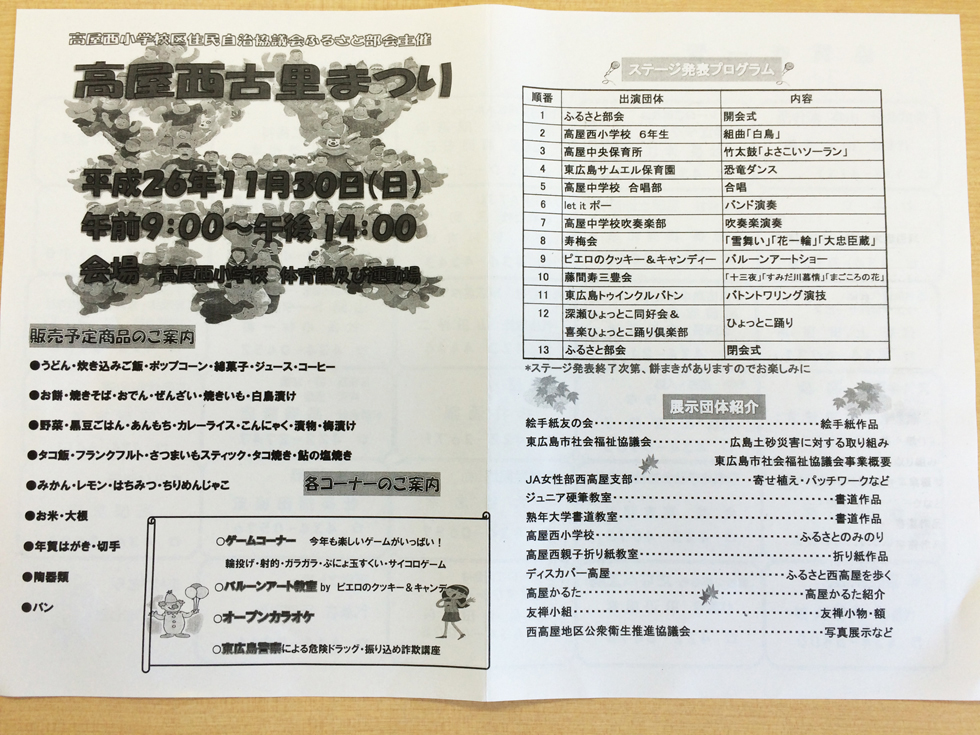 高屋西小学校区住民自治協議会ふるさと部会主催
高屋西古里まつり
平成26年11月30日(日)
午前9:00～午後14:00
会場 高屋西小学校 体育館及び運動場
販売予定商品のご案内
●うどん・炊き込みご飯・ポップコーン・綿菓子・ジュース・コーヒー
●お餅・焼きそば・おでん・ぜんざい・焼きいも・白鳥漬け
●野菜・黒豆ごはん・あんもち・カレーライス・こんにゃく・漬物・梅漬け
●タコ飯・フランクフルト・さつまいもスティック・タコ焼き・鮎の塩焼き
●みかん・レモン・はちみつ・ちりめんじゃこ
●お米・大根
●年賀はがき・切手
●陶器類
●パン
各コーナーのご案内
○ゲームコーナー 今年も楽しいゲームがいっぱい！
輪投げ・射的・ガラガラ・ぷにょ玉すくい・サイコロゲーム
○バルーンアート教室 by ピエロのクッキー＆キャンデ
○オープンカラオケ
○東広島警察による危険ドラッグ・振り込め詐欺講座
ステージ発表プログラム
順番 出演団体 内容
1 ふるさと部会 開会式
2 高屋西小学校 6年生 組曲「白鳥」
3 高屋中央保育所 竹太鼓「よさこいソーラン」
4 東広島サムエル保育園 恐竜ダンス
5 高屋中学校 合唱部 合唱
6 let it ポー バンド演奏
7 高屋中学校吹奏楽部 吹奏楽演奏
8 寿梅会 「雪舞い」「花一輪」「大忠臣蔵」
9 ピエロのクッキー＆キャンディー バルーンアートショー
10 藤間寿三豊会 「十三夜」「すみだ川慕情」「まごころの花」
11 東広島トゥインクルバトン バトントワリング演技
12 深瀬ひょっとこ同好会＆
喜楽ひょっとこ踊り倶楽部 ひょっとこ踊り
13 ふるさと部会 閉会式
*ステージ発表終了次第、餅まきがありますのでお楽しみに
展示団体紹介
絵手紙友の会・・・・・・・・・・・・・・・・・・・・絵手紙作品
東広島市社会福祉協議会・・・・・・・・・・・・広島土砂災害に対する取り組み
東広島市社会福祉協議会事業概要
JA女性部西高屋支部・・・・・・・・・・・・・・・寄せ植え・パッチワークなど
ジュニア硬筆教室・・・・・・・・・・・・・・・・・・・・書道作品
熟年大学書道教室・・・・・・・・・・・・・・・・・・・・書道作品
高屋西小学校・・・・・・・・・・・・・・・・・・・・ふるさとのみのり
高屋西親子折り紙教室・・・・・・・・・・・・・・・・・・折り紙作品
ディスカバー高屋・・・・・・・・・・・・・・・・・・ふるさと西高屋を歩く
高屋かるた・・・・・・・・・・・・・・・・・・・・高屋かるた紹介
友禅小組・・・・・・・・・・・・・・・・・・・・・・友禅小物・額
西高屋地区公衆衛生推進協議会・・・・・・・・・・・・写真展示など